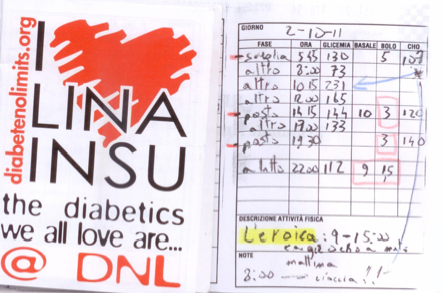 diabetenolimits.org
I
LINA
INSU
the diabetics
we all love are...
@ DNL
GIORNO 2-10-11
FASE ORA GLICEMIA BASALE BOLO CHO
sveglia 5.45 130 5
altro 8:00 73
altro 10.15 231
altro 12.00 165
pasto 14.15 144 10 3 120
altro 17.00 133
pasto 19,30 3 140
a letto 22.00 112 9 1,5
DESCRIZIONE ATTIVITÀ FISICA
L'eroica: 9-15:00
NOTE mattina
8:00